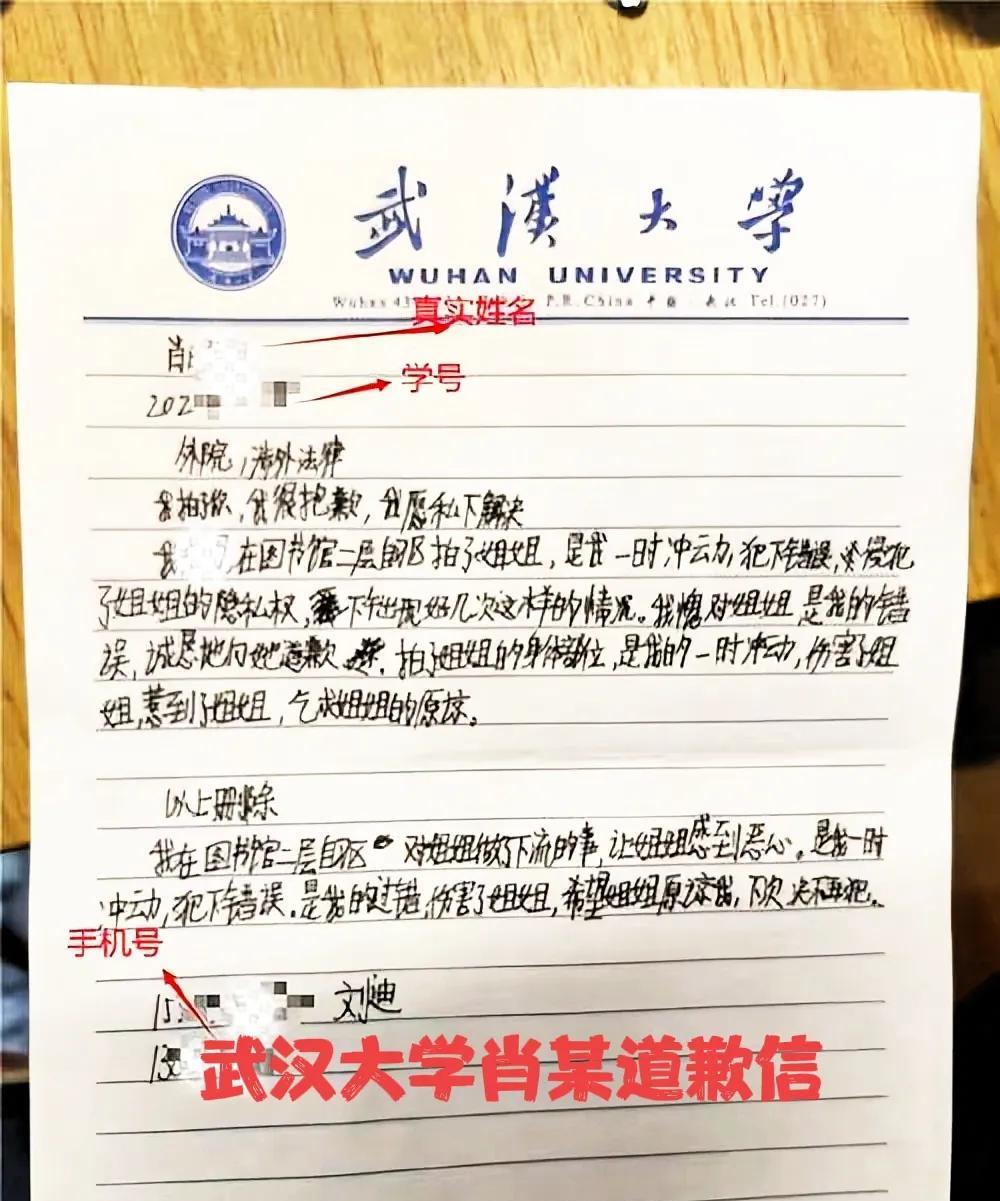 武漢大學
WUHAN UNIVERSITY
Wuhan 43 P.R.China 中国·武汉 Tel.(027)
真实姓名
肖
学号
202
外院，涉外法律
我拍了你，我很抱歉，我愿私下解决
我 在图书馆二层自习区拍了姐姐，是我一时冲动，犯下错误，侵犯
了姐姐的隐私权，下出现好几次这样的情况。我愧对姐姐，是我的错
误，诚恳地向她道歉，拍了姐姐的身体部位，是我的一时冲动，伤害了姐
姐，惹到了姐姐，乞求姐姐的原谅。
以上删除
我在图书馆二层自习区 对姐姐做了下流的事，让姐姐感到恶心。是我一时
冲动，犯下错误。是我的过错，伤害了姐姐，希望姐姐原谅我，下次决不再犯。
手机号
15 刘迪
13
武汉大学肖某道歉信